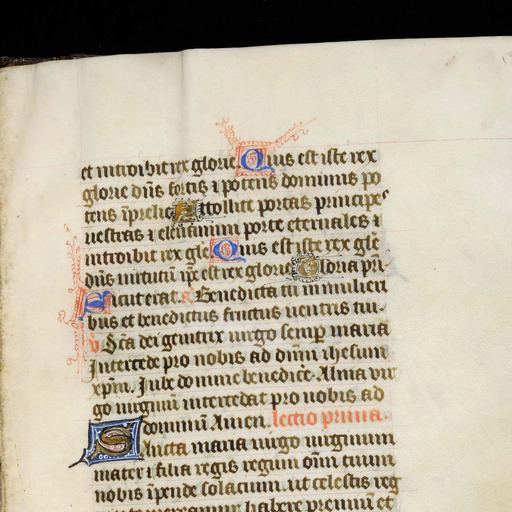 et introibit rex glorie. Quis est iste rex
glorie dn̄s fortis ⁊ potens dominus po
tens ī prelio Attollite portas principes
uestras ⁊ eleuamini porte eternales ⁊
introibit rex gl̄e Quis est iste rex gl̄e
dn̄s uirtutū ip̄e est rex glorie Gloria pr̄i
Sicut erat. a. Benedicta tu in mulieri
bus et benedictus fructus uentris tui.
v Sc̄a dei genitrix uirgo semp̄ maria
Intercede pro nobis ad dn̄m ihesum
xp̄m. Jube domine benedicē. Alma vir
go uirginū intercedat pro nobis ad
dominū Amen. lectio prima.
Sancta maria uirgo uirginum
mater ⁊ filia regis regum om̄i tuum
nobis īpende solacium. ut celestis reg
habere premium et